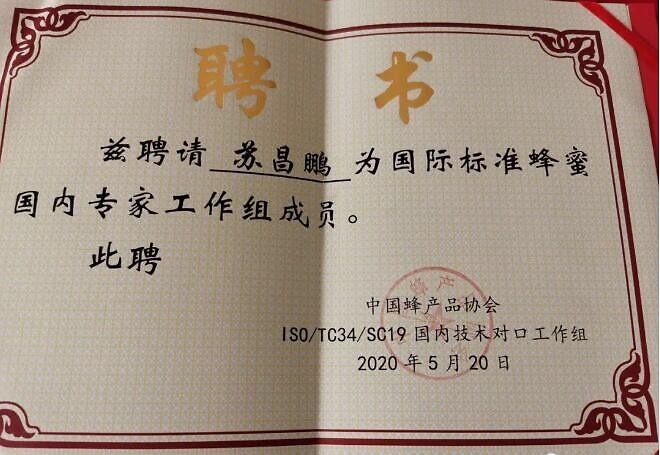 聘书
兹聘请 苏昌鹏 为国际标准蜂蜜
国内专家工作组成员。
此聘
中国蜂产品协会
ISO/TC34/SC19 国内技术对口工作组
2020 年 5 月 20 日